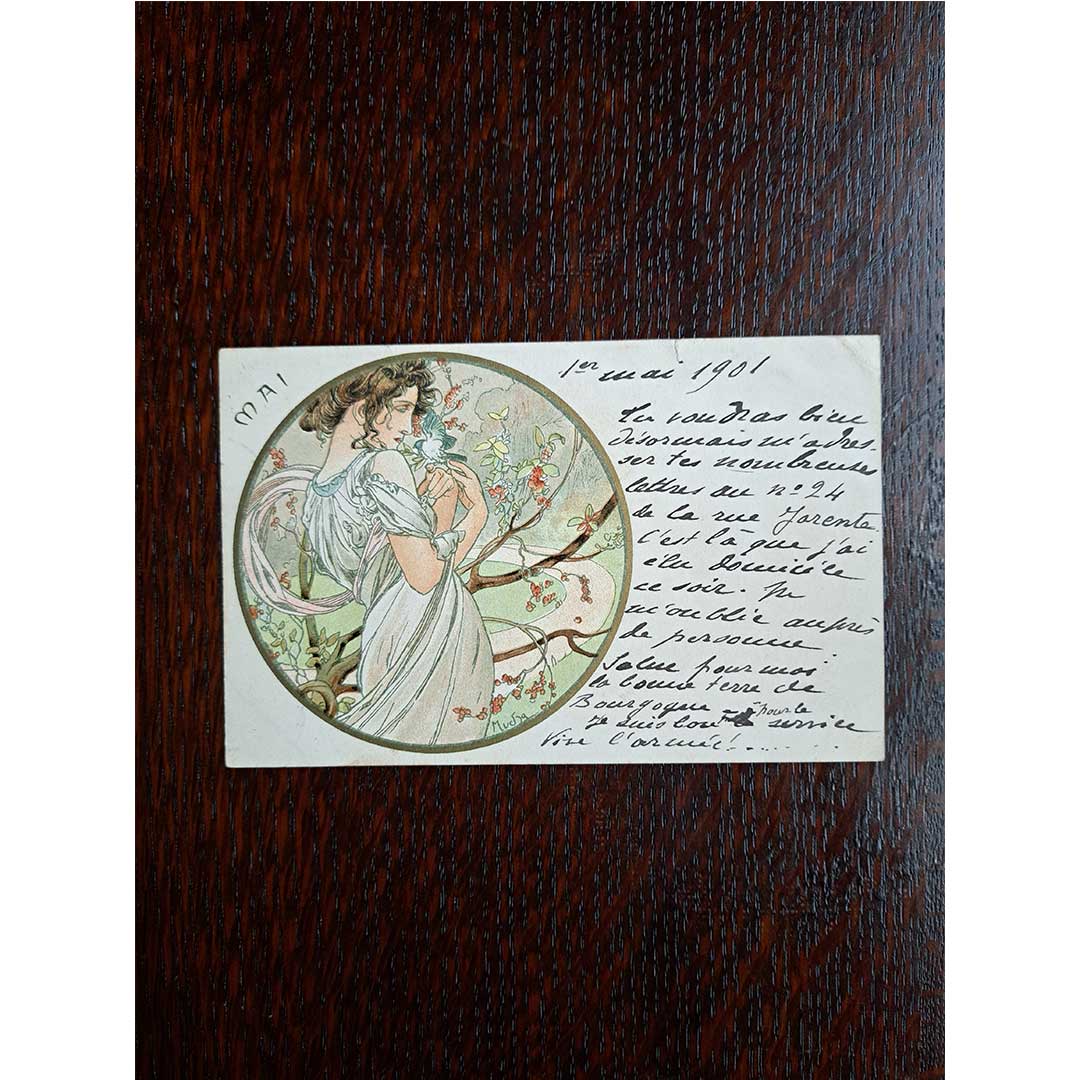 MAI
1er mai 1901
Tu voudras bien
désormais m'adres-
ser tes nombreuses
lettres au nº 24
de la rue Jarente.
C'est là que j'ai
élu domicile
ce soir. Ne
m'oublie auprès
de personne
Salue pour moi
la bonne terre de
Bourgogne
Je suis bon pour le service
Vive l'armée! .... ...
Mucha